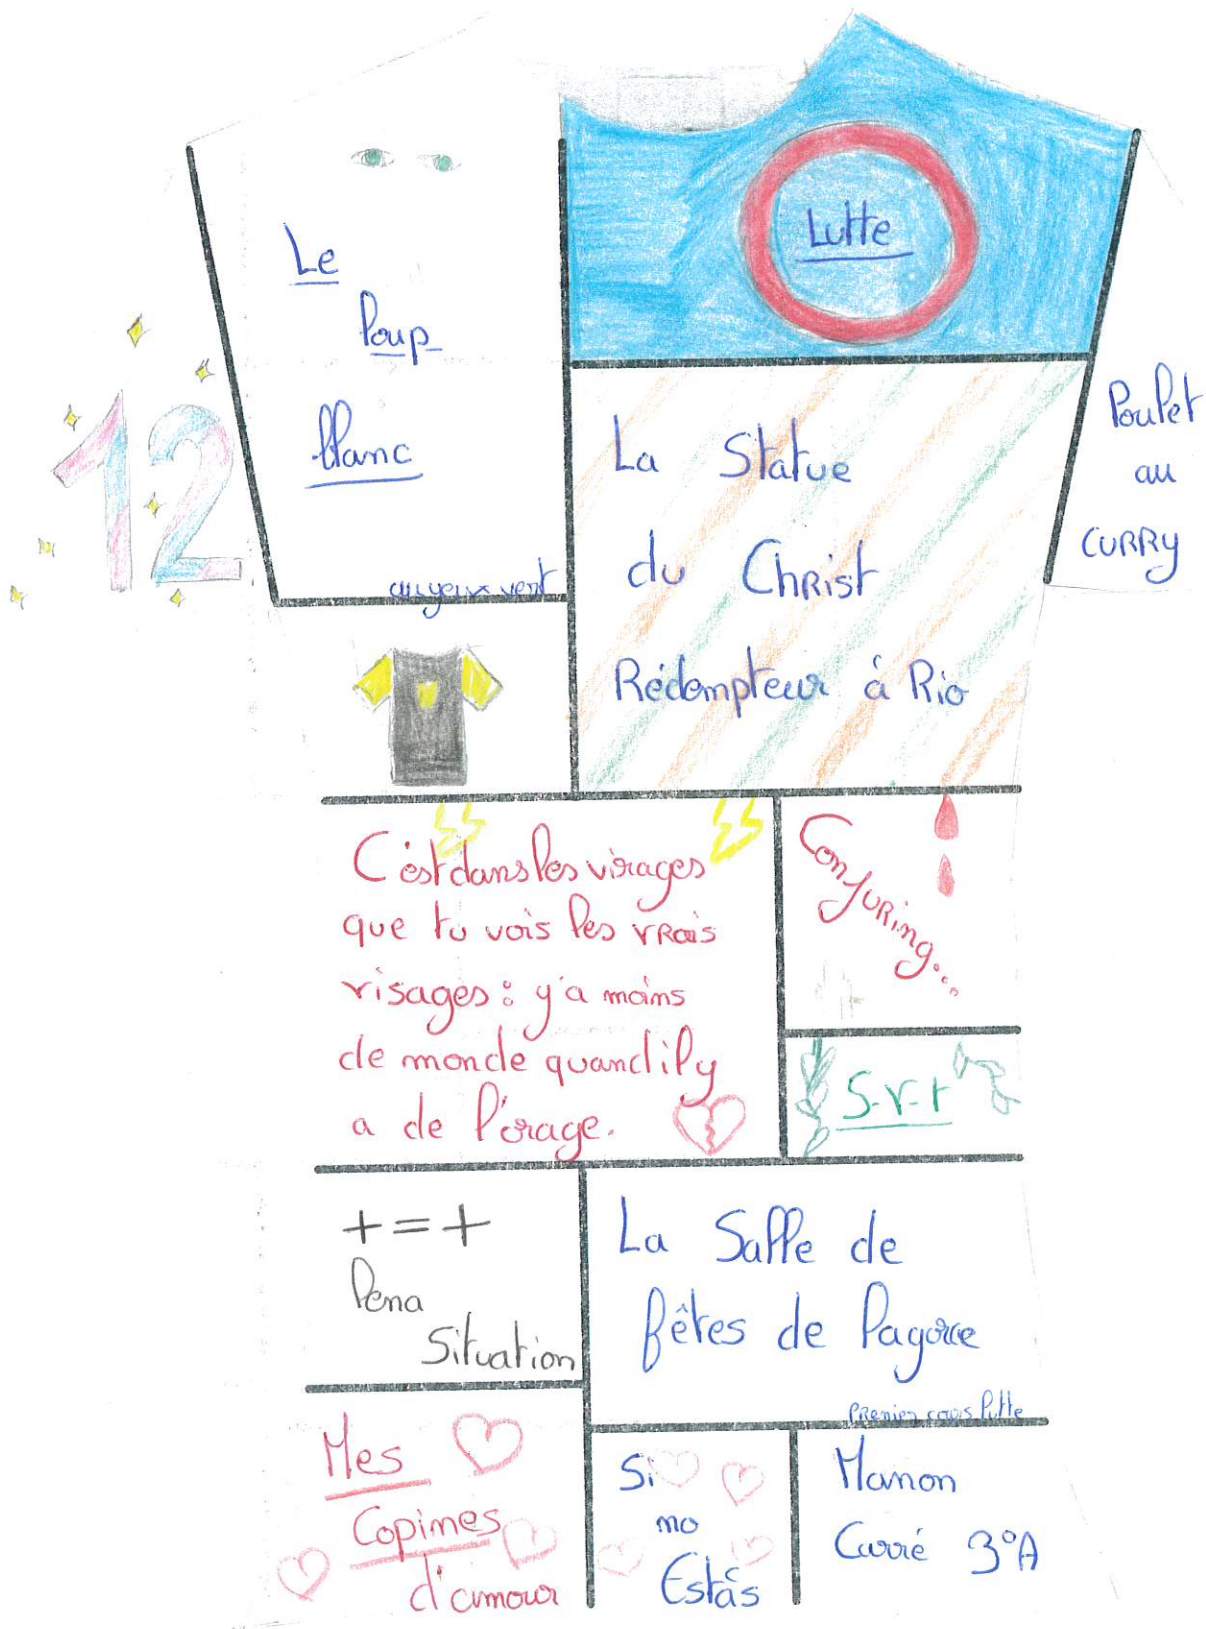 Le
loup
blanc
aux yeux vert
12
Lutte
La Statue
du Christ
Rédempteur à Rio
Poulet
au
CURRY
C'est dans les virages
que tu vois les vrais
visages : y'a moins
de monde quand il y
a de l'orage.
Conjuring...
S-V-t
+=+
Lena
Situation
La Salle de
fêtes de Lagorce
Premier cours lutte
Mes
Copines
d'amour
Si
no
Estás
Manon
Carré 3°A